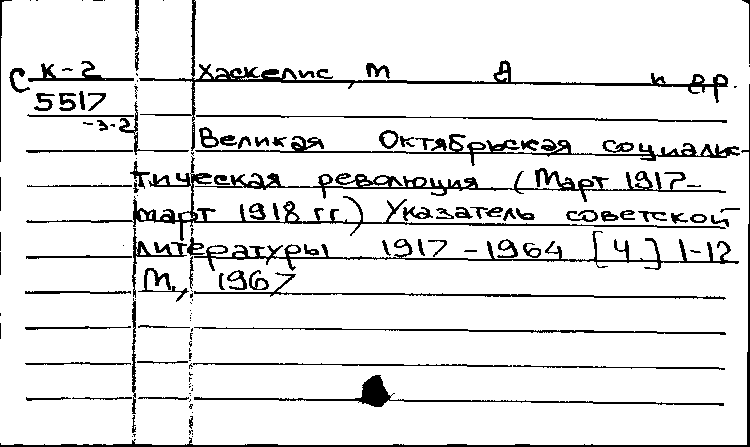 С К-2 Хаскелис, М Д и др.
5517
-3-2
Великая Октябрьская социалис-
тическая революция (Март 1917-
март 1918 гг.) Указатель советской
литературы 1917-1964 [Ч.] 1-12
М., 1967